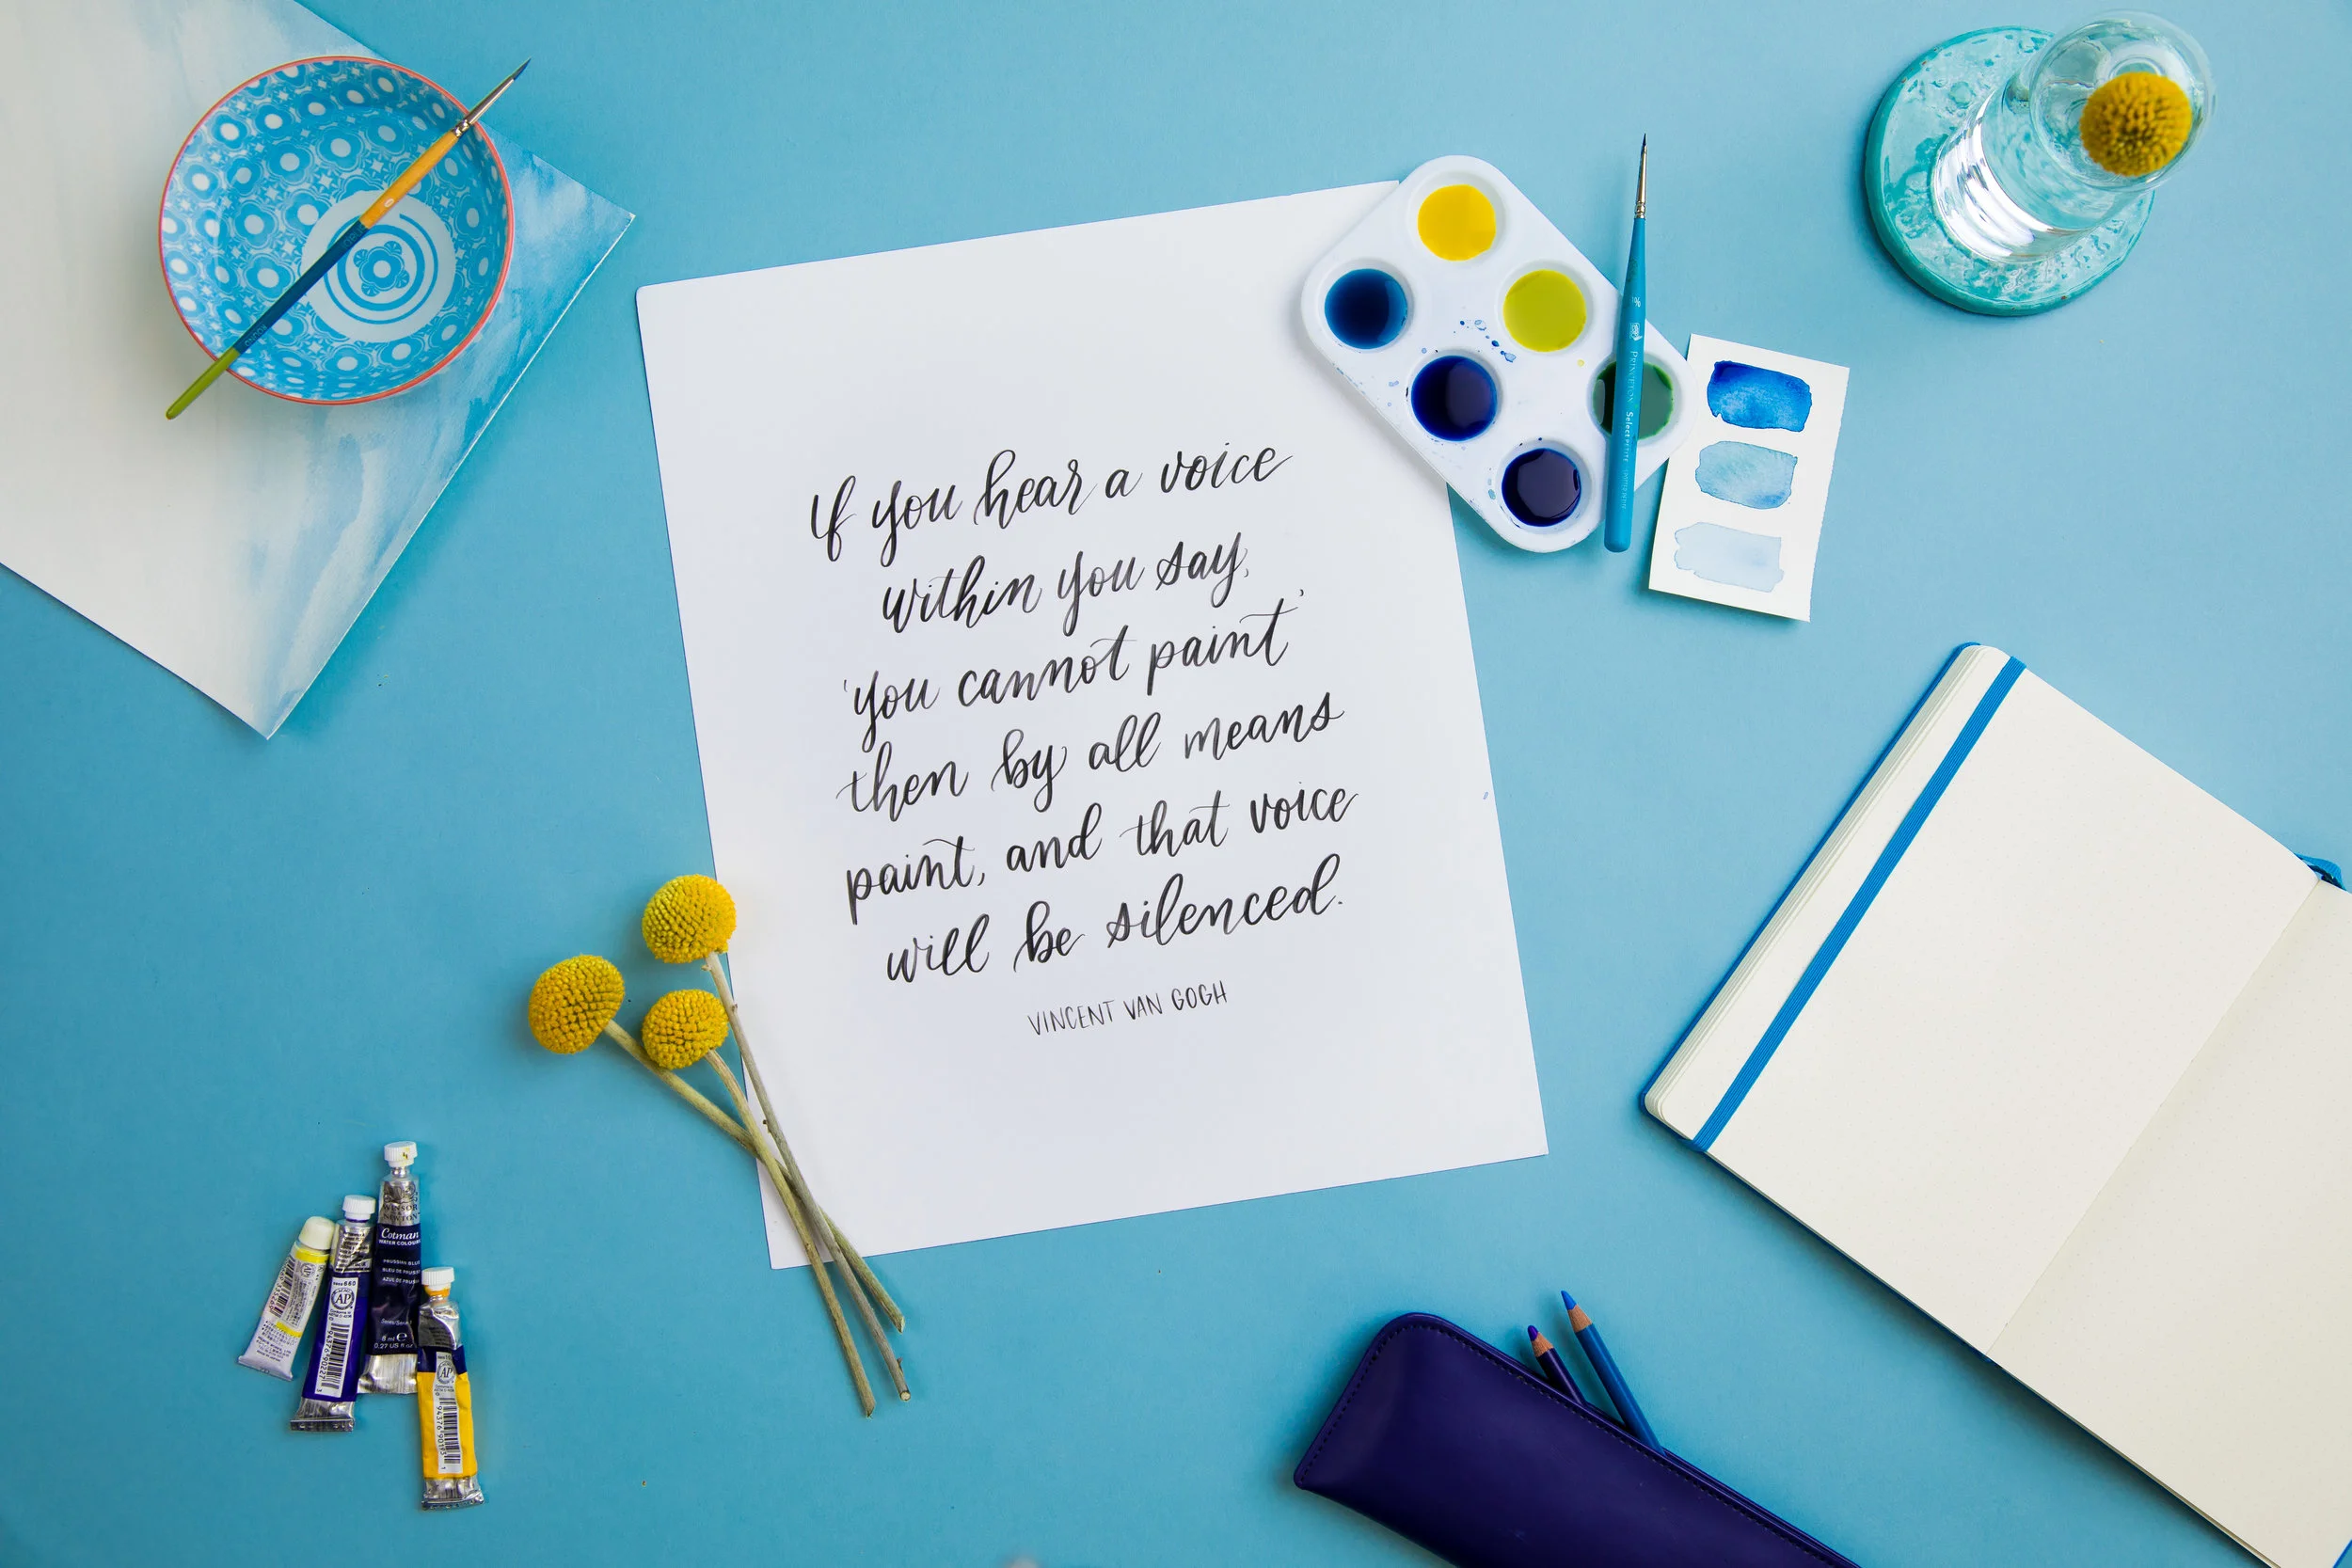 If you hear a voice
within you say,
'you cannot paint'
then by all means
paint, and that voice
will be silenced.
VINCENT VAN GOGH
PRINCETON Select
WINSOR
& NEWTON
Cotman
WATER COLOUR
PRUSSIAN BLUE
BLEU DE PRUSSE
AZUL DE PRUSIA
8 ml e
0.27 US fl
660
AP
AP